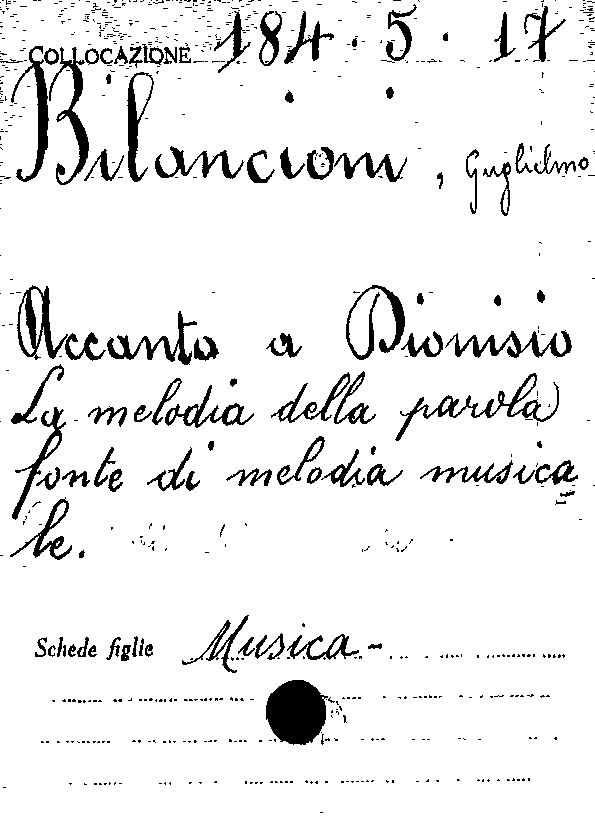 COLLOCAZIONE 184.5.17
Bilancioni, Guglielmo
Accanto a Dionisio
La melodia della parola
fonte di melodia musica
le.
Schede figlie Musica-